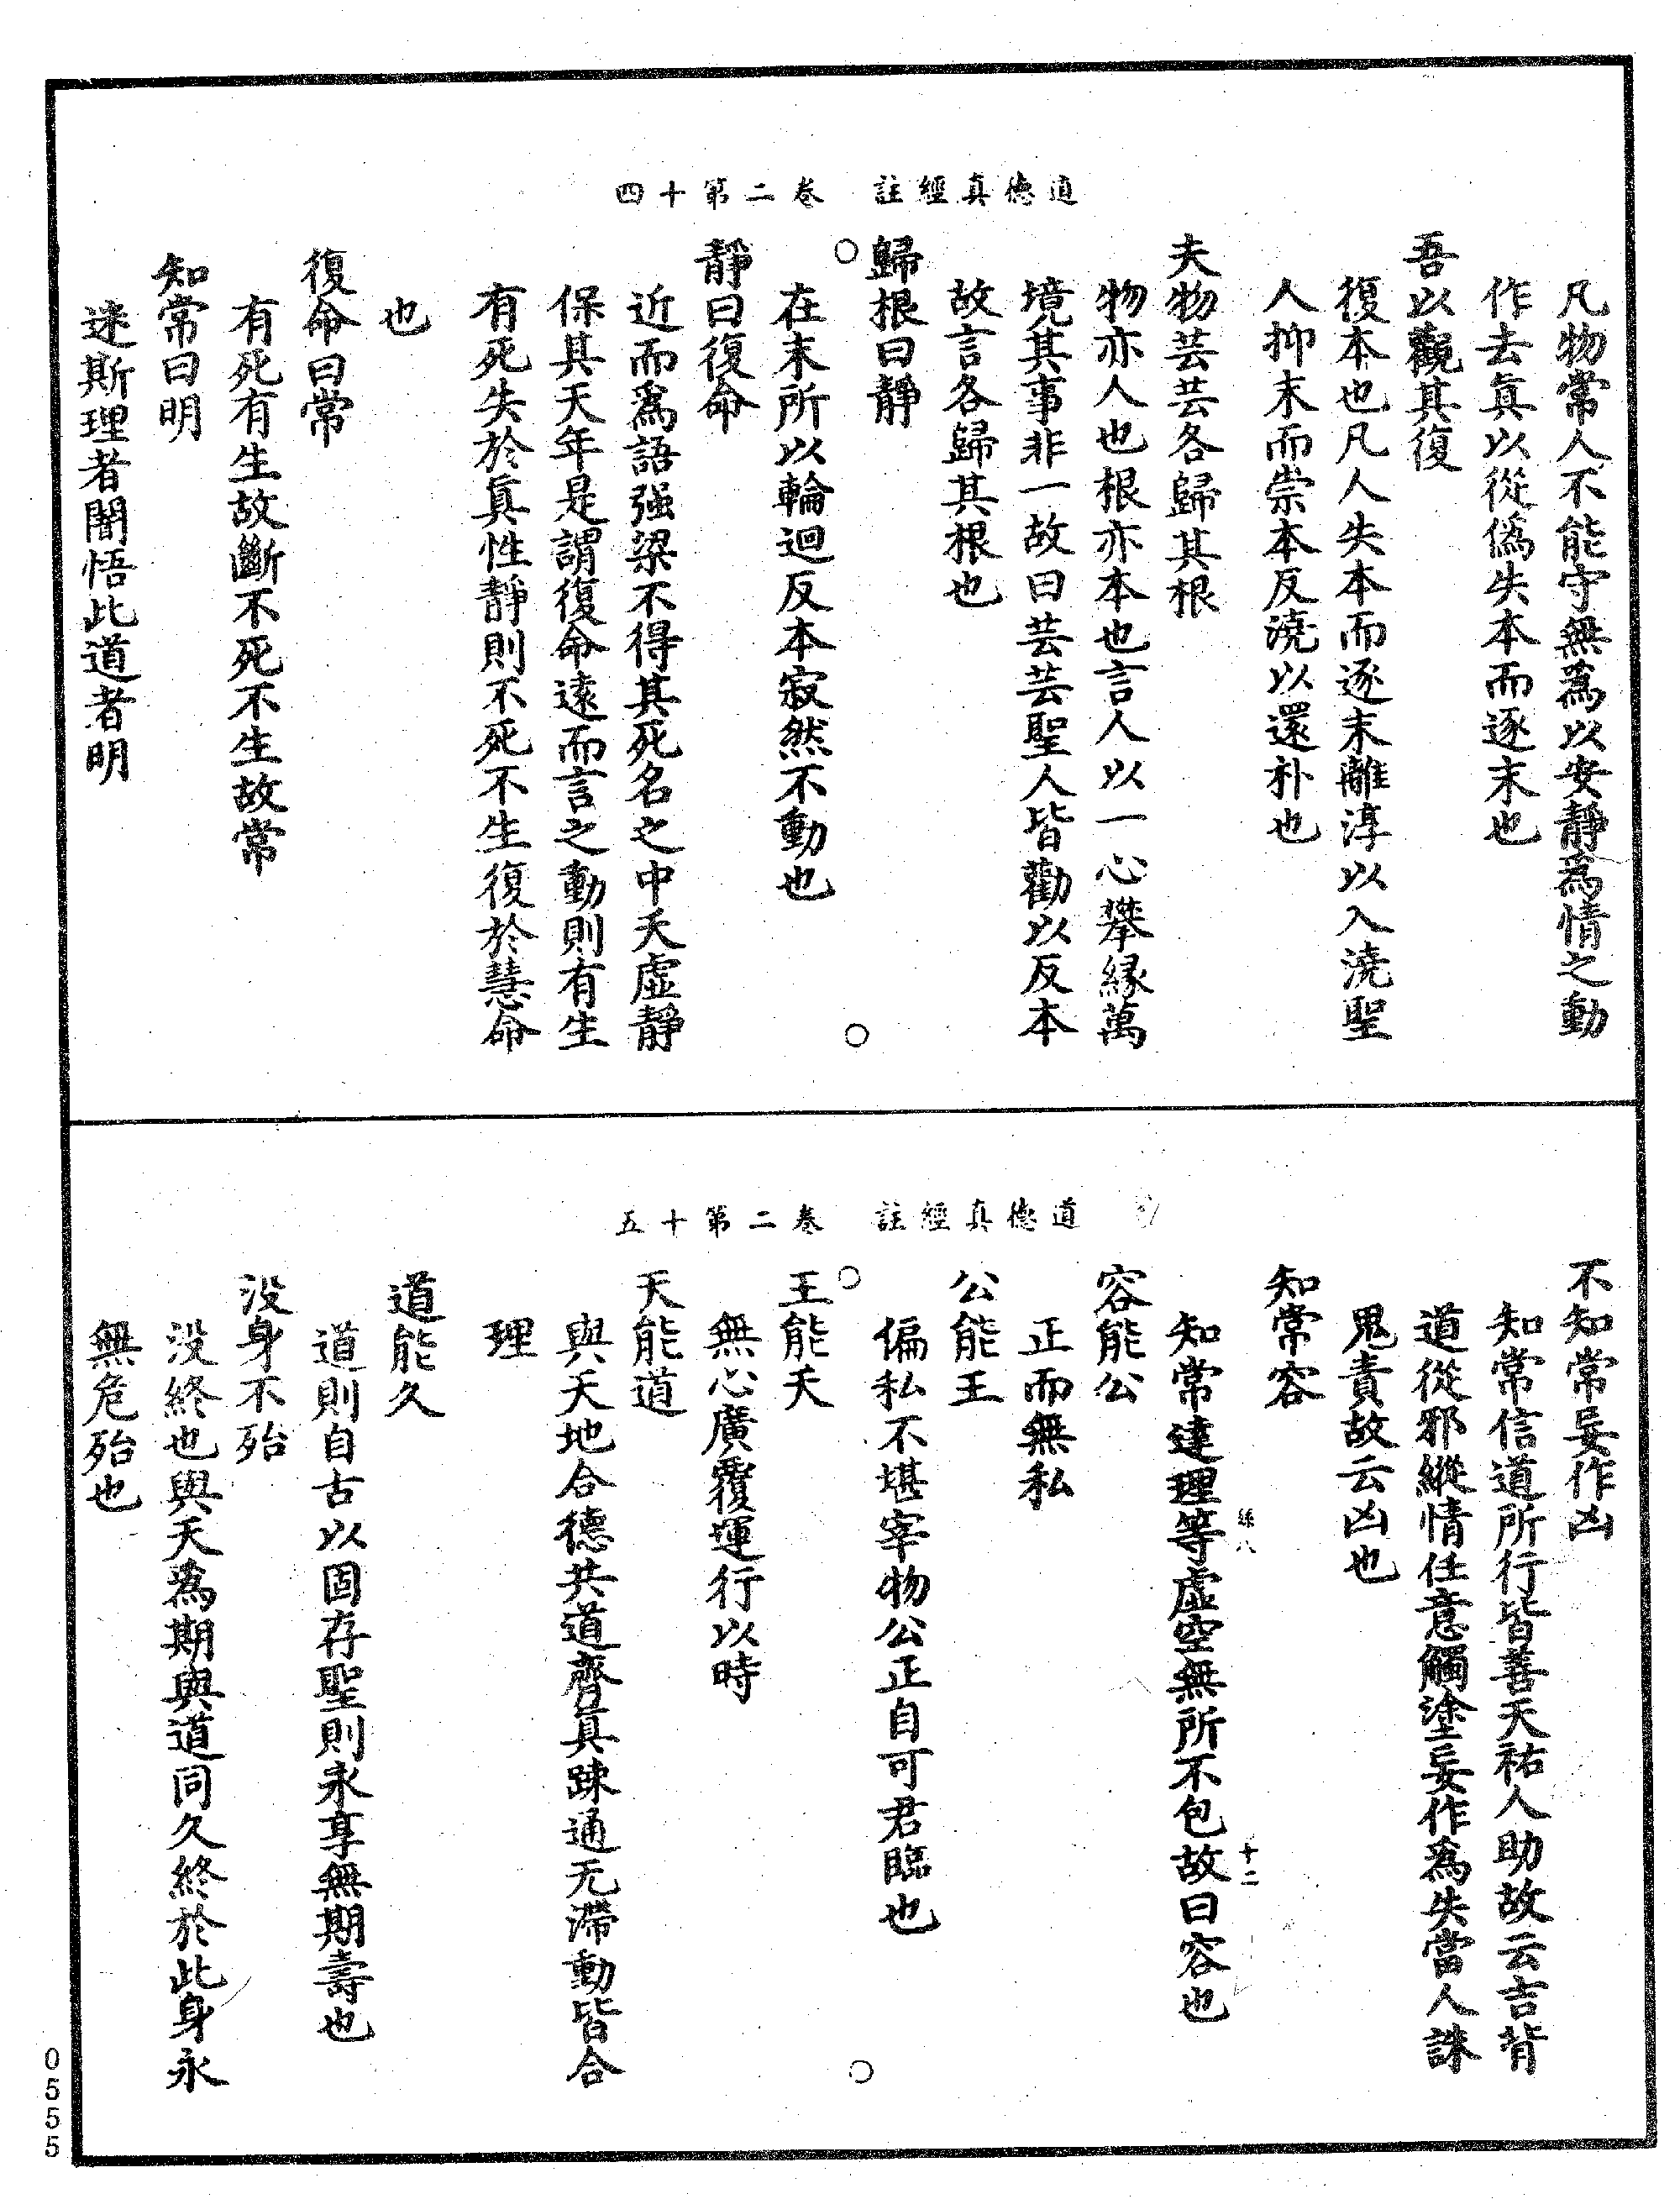 道德真經註　卷二第十四
凡物常人不能守無為以安靜為情之動
作去真以從偽失本而逐末也
吾以觀其復
復本也凡人失本而逐末離淳以入澆聖
人抑末而崇本反澆以還朴也
夫物芸芸各歸其根
物亦人也根亦本也言人以一心攀緣萬
境其事非一故曰芸芸聖人皆勸以反本
故言各歸其根也
歸根曰靜
在末所以輪迴反本寂然不動也
靜曰復命
近而為語强梁不得其死名之中夭虛靜
保其天年是謂復命遠而言之動則有生
有死失於真性靜則不死不生復於慧命
也
復命曰常
有死有生故斷不死不生故常
知常曰明
迷斯理者闇悟此道者明
道德真經註　卷二第十五
不知常妄作凶
知常信道所行皆善天祐人助故云吉背
道從邪縱情任意觸塗妄作為失當人誅
鬼責故云凶也
知常容
知常達理等虛空無所不包故曰容也
絲八　十二
容能公
正而無私
公能王
偏私不堪宰物公正自可君臨也
王能天
無心廣覆運行以時
天能道
與天地合德共道齊真疎通无滯動皆合
理
道能久
道則自古以固存聖則永享無期壽也
没身不殆
没終也與天為期與道同久終於此身永
無危殆也
0555